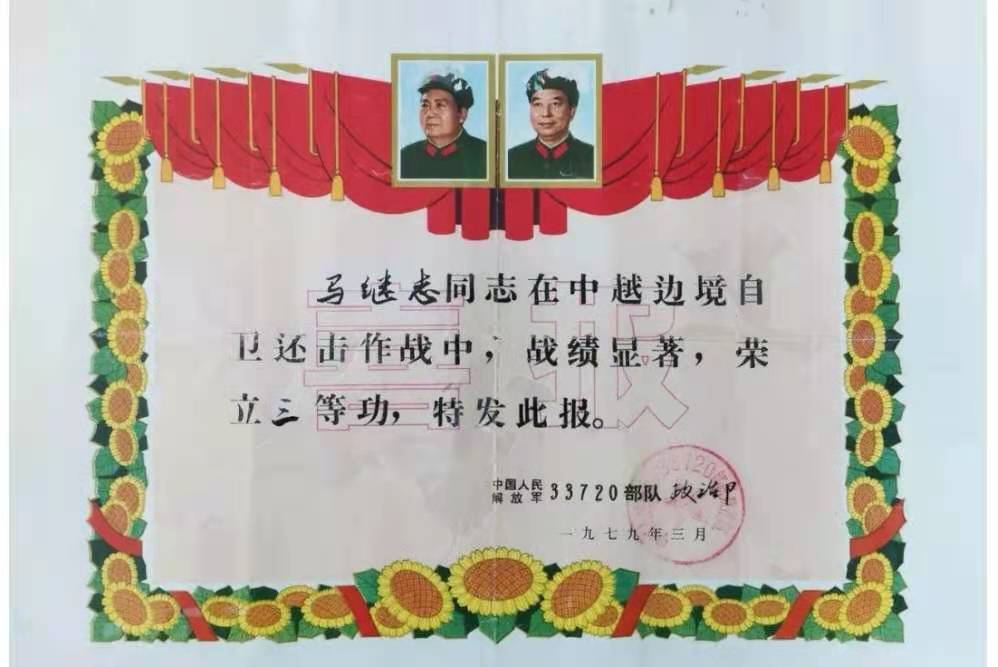 喜报
马继志同志在中越边境自
卫还击作战中，战绩显著，荣
立三等功，特发此报。
中国人民
解放军 33720部队 政治
一九七九年三月